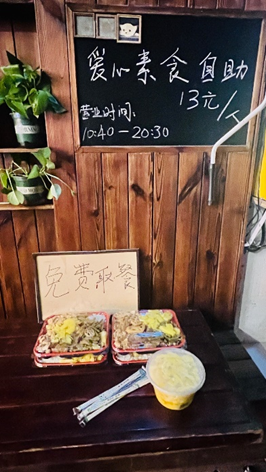 爱心素食自助
13元/人
营业时间:
10:40-20:30
免费取餐